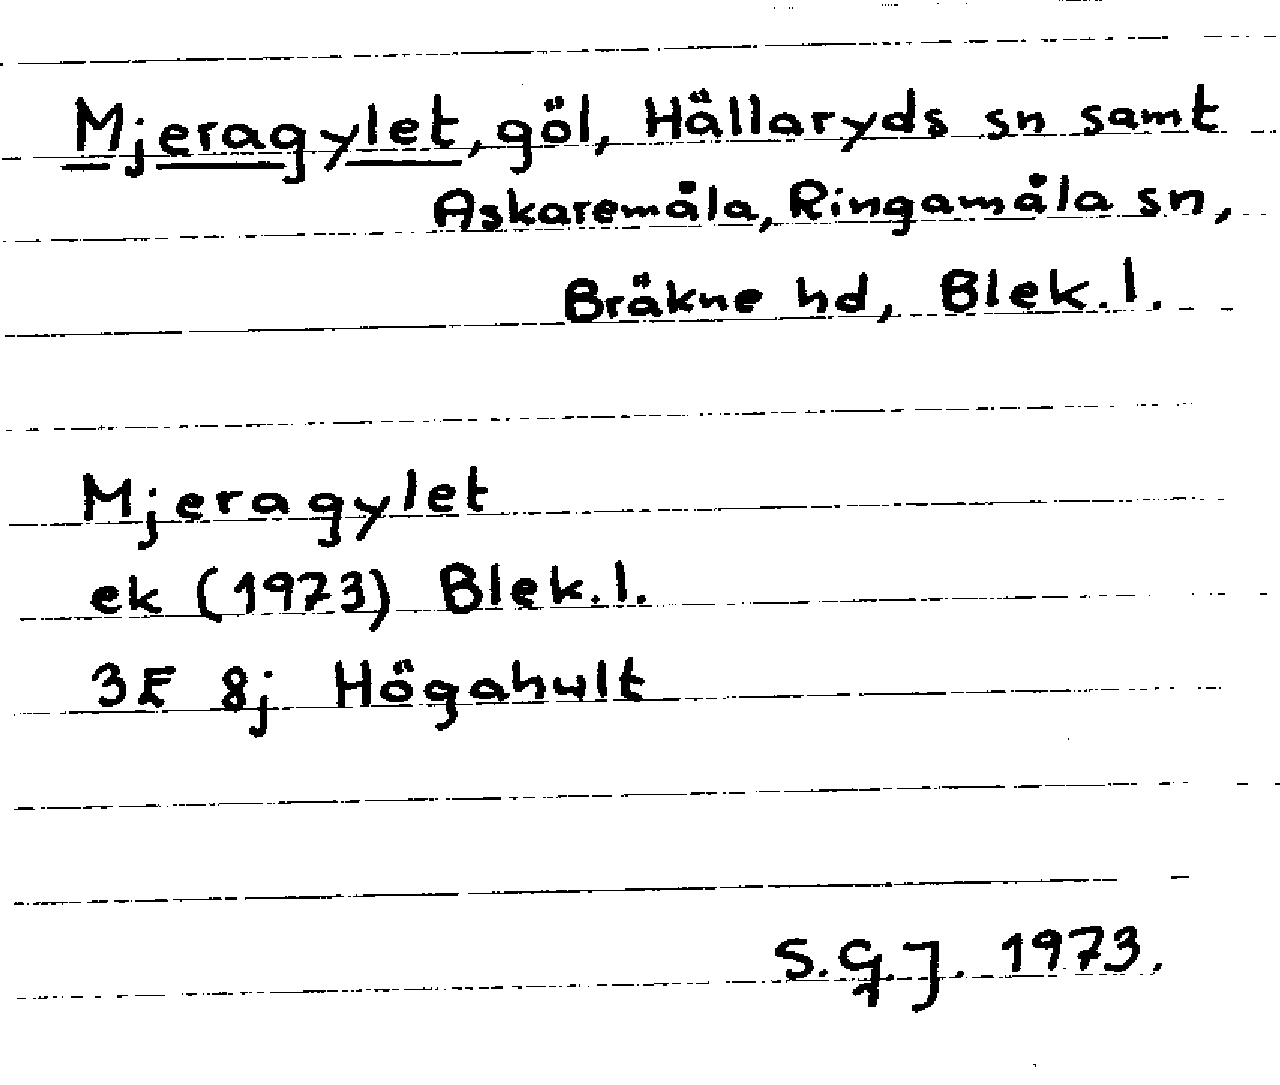 Mjeragylet, göl, Hällaryds sn samt
Askaremåla, Ringamåla sn,
Bräkne hd, Blek. l.
Mjeragylet
ek (1973) Blek. l.
3E 8j Högahult
S. G. J. 1973.